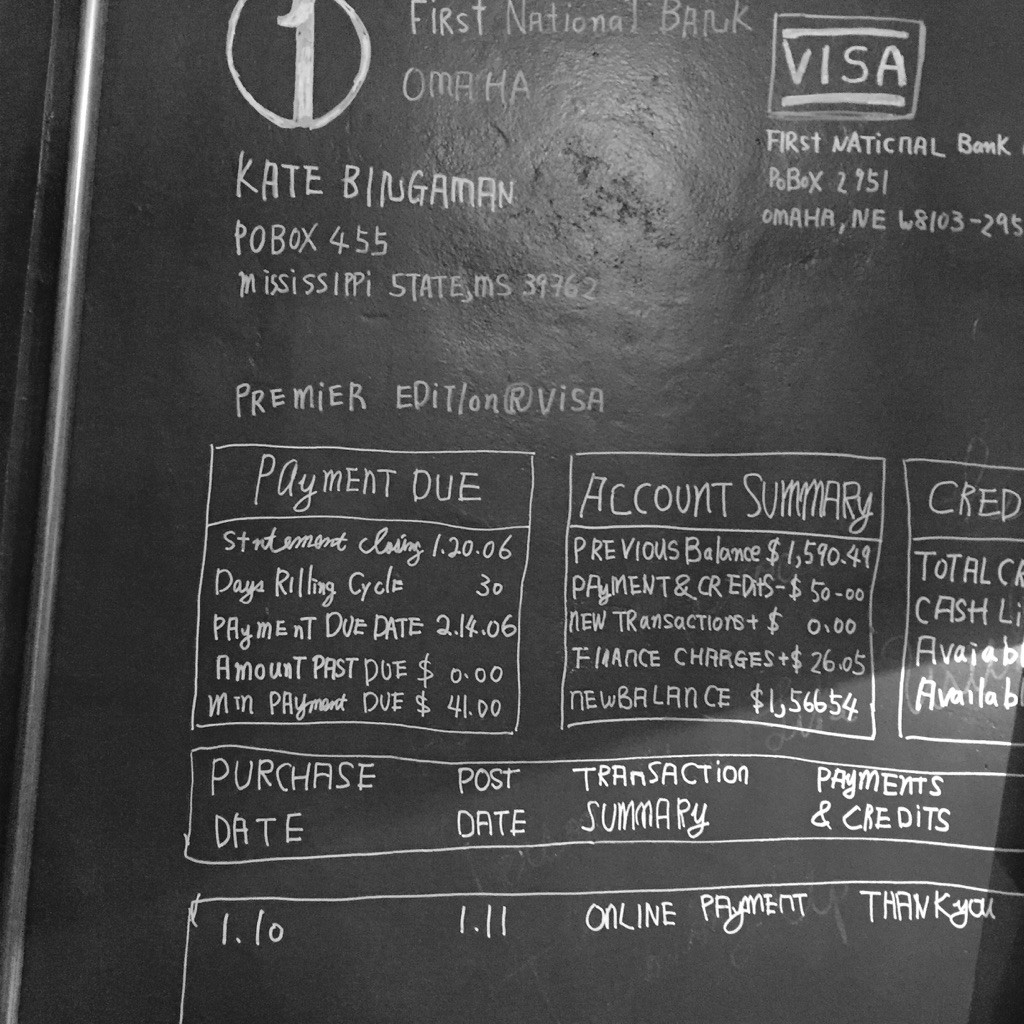 1
First National Bank
OMAHA
VISA
FIRst NATIONAL Bank
PoBox 2951
OMAHA, NE 68103-295
KATE BINGAMAN
POBOX 455
Mississippi STATE, MS 39762
PREMIER EDITION® VISA
PAYMENT DUE
Statement closing 1.20.06
Days Billing Cycle 30
PAYMENT DUE DATE 2.14.06
AMOUNT PAST DUE $ 0.00
MIN PAYment DUE $ 41.00
ACCOUNT SUMMARY
PREVIOUS Balance $1,590.49
PAYMENT & CREDITS - $ 50.00
NEW TRansactions + $ 0.00
FINANCE CHARGES + $ 26.05
NEW BALANCE $1,56654
CRED
TOTAL CR
CASH Li
Availabl
Availab
PURCHASE DATE
POST DATE
TRANSACTION SUMMARY
PAYMENTS & CREDITS
1.10 1.11 ONLINE PAYMENT THANK you